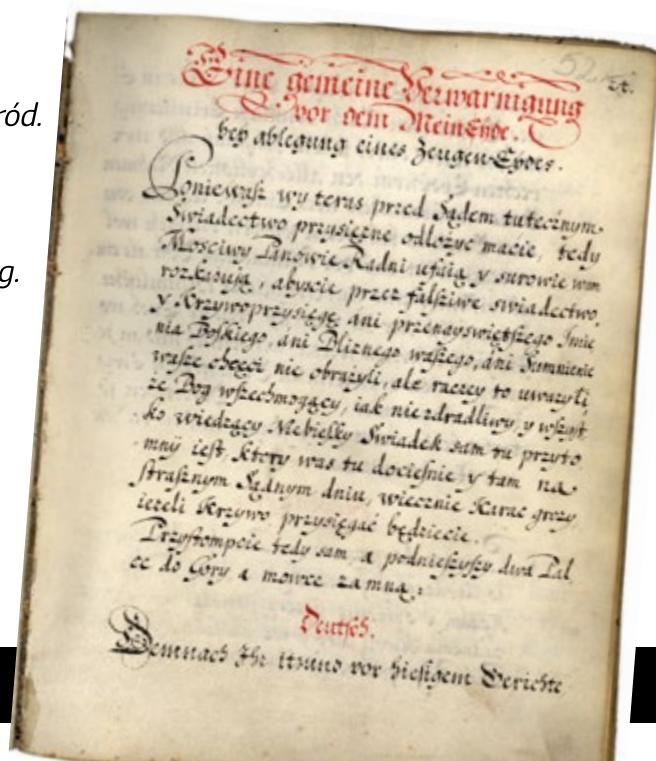 ród.
g.
52.
24.
Eine gemeine Verwarnigung
vor dem MeinEyde.
bey ablegung eines Zeugen-Eydes.
Poniewasz wy teras przed Sądem tutecznym
Swiadectwo przysięzne odłozyc macie, tedy
Mosciwy Panowie Radni ufaią y surowie wam
rozkazuią, abyscie przez fałsziwe swiadectwo,
y Krzywoprzysięgę ani przenayswiętszego Imie
nia Boskiego, ani Bliznego waszego, ani Sumnienie
wasze chęcęi nie obrazyli, ale raczey to uwazyli,
ze Bog wszechmogący, iak niezdradliwy, y wszyst
ko wiedzący Niebiesky Swiadek sam tu przyto
mny iest, Ktory was tu dociesnie y tam na
strasznym Sądnym dniu, wiecznie Karac grozy,
iezeli Krzywo przysięgać będziecie.
Przystompcie tedy sam, a podnieszyszy dwa Pal
ce do Gory a mowce za mną:
Deutsch.
Demnach Ihr itzund vor hiesigem Gerichte